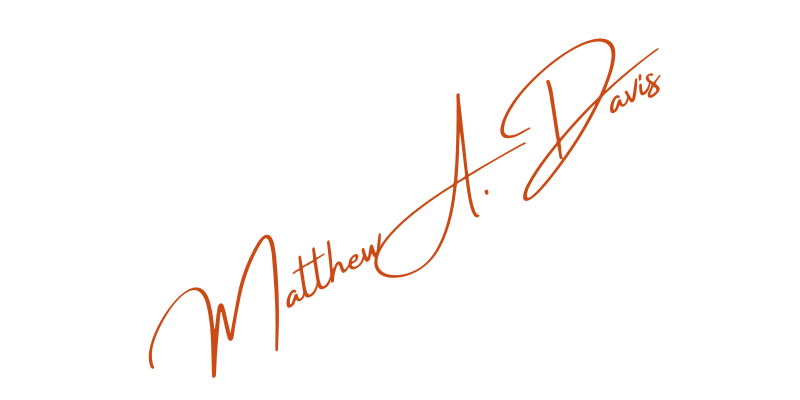 Matthew A. Davis